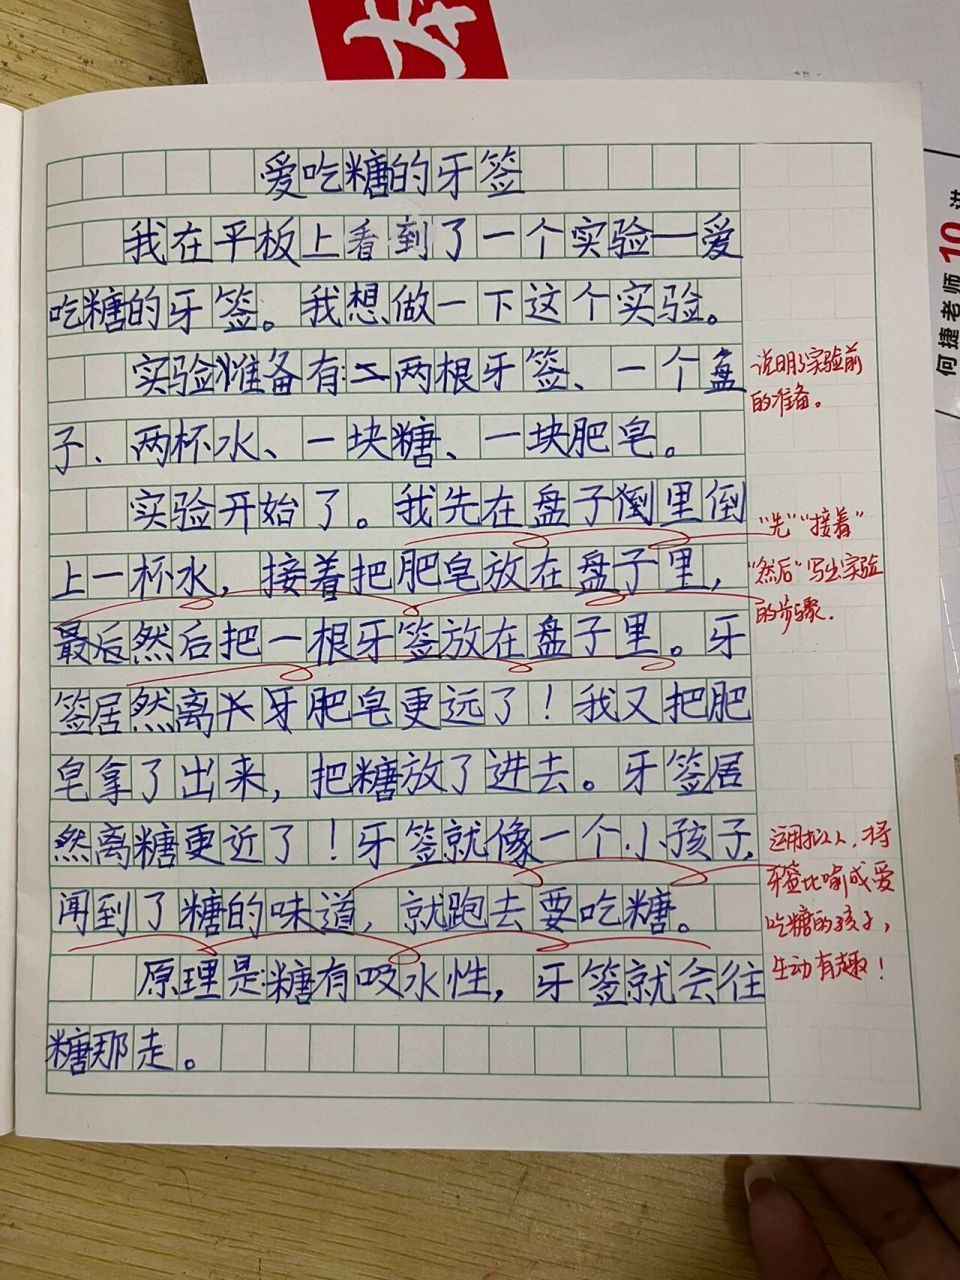 爱吃糖的牙签
我在平板上看到了一个实验——爱
吃糖的牙签。我想做一下这个实验。
实验准备有:两根牙签、一个盘
子、两杯水、一块糖、一块肥皂。
实验开始了。我先在盘子里倒
上一杯水，接着把肥皂放在盘子里，
最后然后把一根牙签放在盘子里。牙
签居然离肥皂更远了！我又把肥
皂拿了出来，把糖放了进去。牙签居
然离糖更近了！牙签就像一个小孩子，
闻到了糖的味道，就跑去要吃糖。
原理是:糖有吸水性，牙签就会往
糖那走。
说明了实验前
的准备。
“先”“接着”
“然后”写出实验
的步骤.
运用拟人，将
牙签比喻成爱
吃糖的孩子，
生动有趣！
何捷老师10